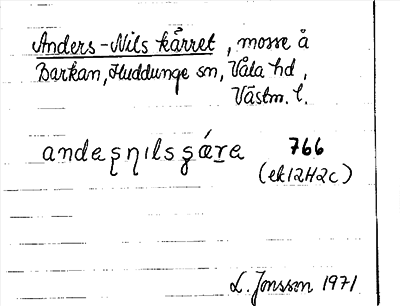 Anders-Nils kärret, mosse å
Barkan, Huddunge sn, Våla hd,
Västm. l.
andeʂɳılsʂǽre 766
(ek12H2c)
L. Jonsson 1971